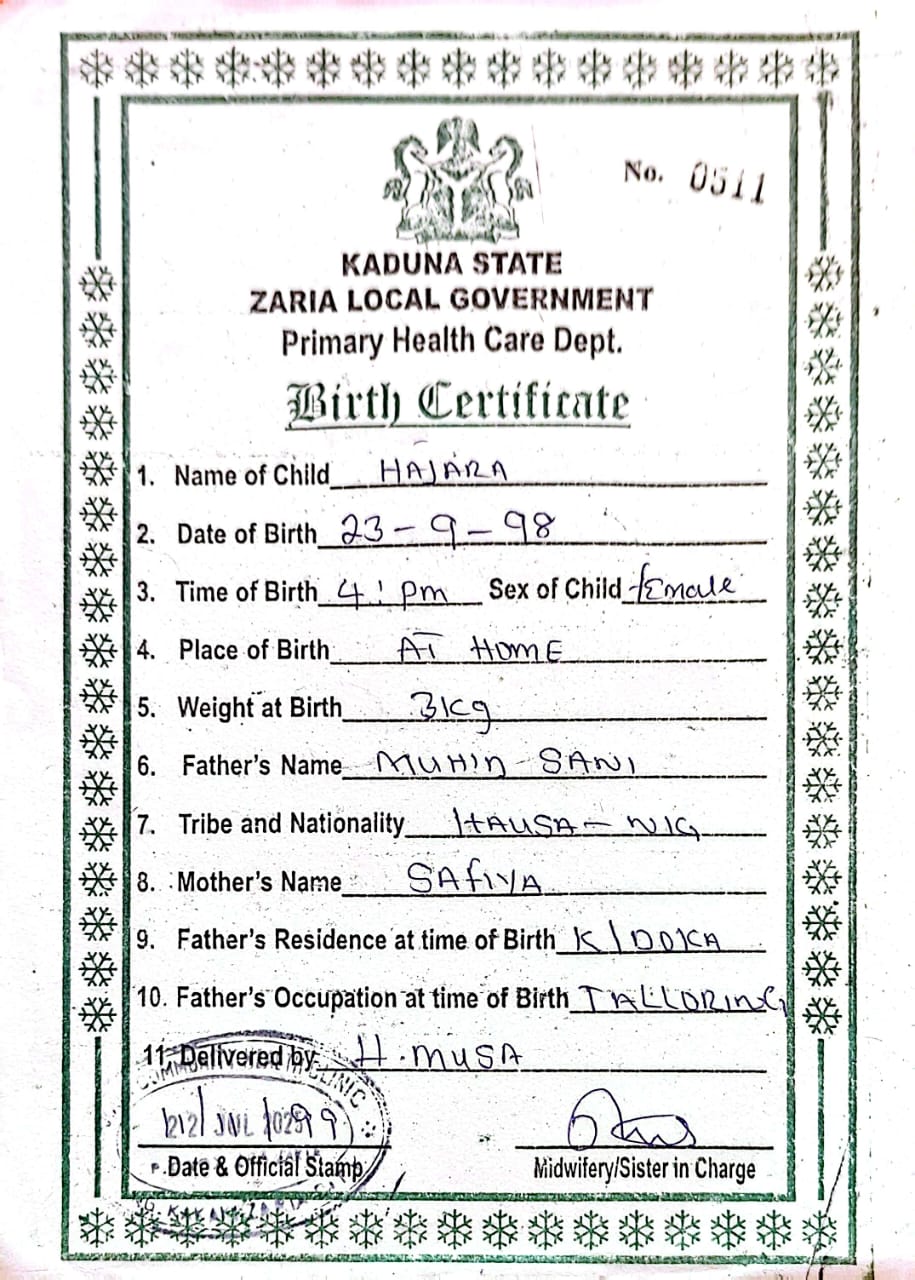 No. 0511
KADUNA STATE
ZARIA LOCAL GOVERNMENT
Primary Health Care Dept.
Birth Certificate
1. Name of Child HAJARA
2. Date of Birth 23-9-98
3. Time of Birth 4: pm Sex of Child female
4. Place of Birth AT HOME
5. Weight at Birth 3kg
6. Father's Name MUHID SANI
7. Tribe and Nationality HAUSA-NIG
8. Mother's Name SAFIYA
9. Father's Residence at time of Birth K/DOKA
10. Father's Occupation at time of Birth TALLORING
11. Delivered by: H. MUSA
CLINIC
JUL
Date & Official Stamp
Midwifery/Sister in Charge